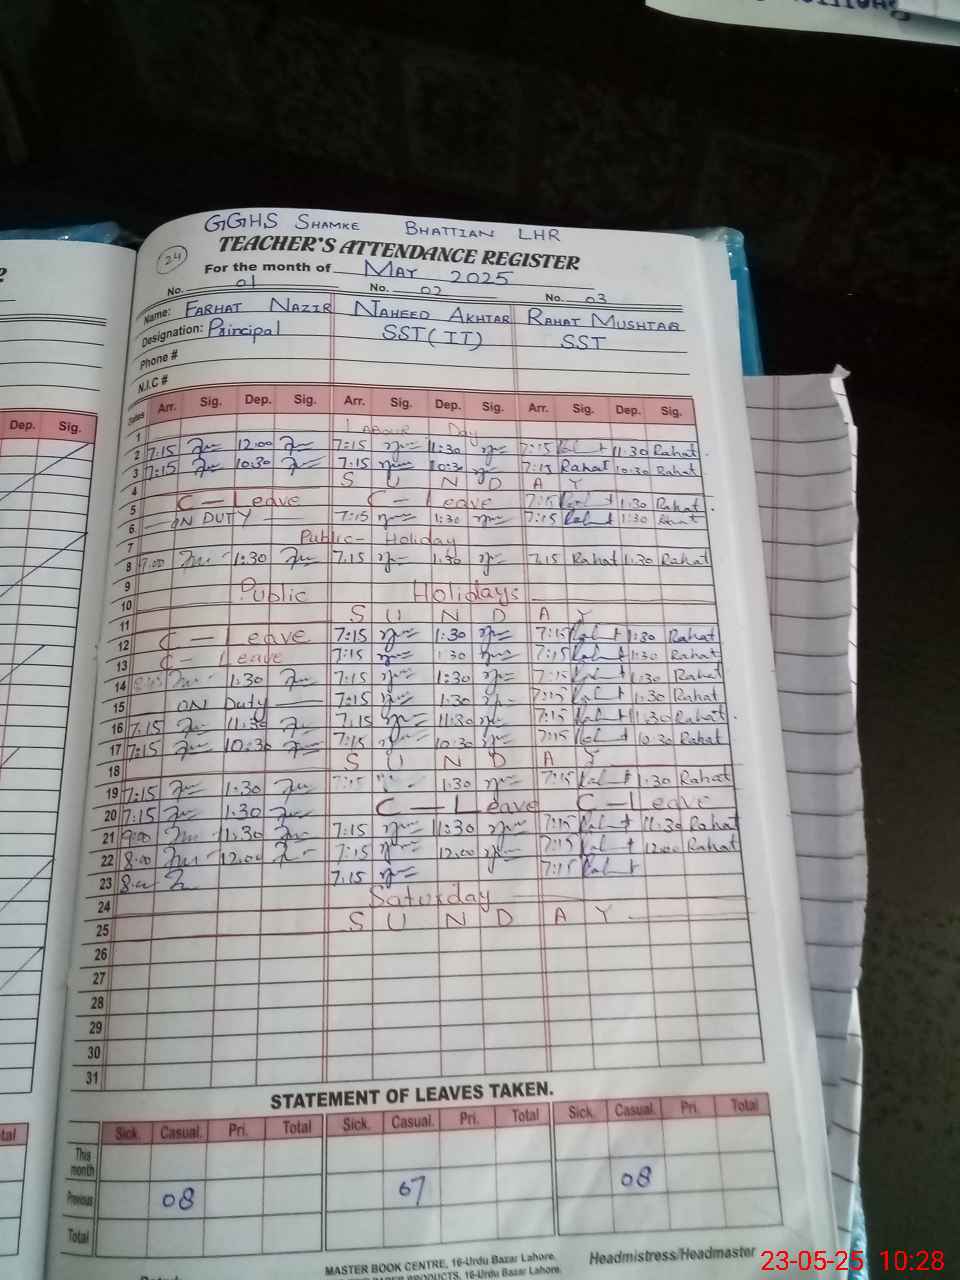 GGHS SHAMKE BHATTIAN LHR
TEACHER'S ATTENDANCE REGISTER
24
For the month of MAY 2025
No. 01 No. 02 No. 03
Name: FARHAT NAZIR NAHEED AKHTAR RAHAT MUSHTAQ
Designation: Principal SST(IT) SST
Phone #
N.I.C #
Dep. Sig.
Dates Arr. Sig. Dep. Sig. Arr. Sig. Dep. Sig. Arr. Sig. Dep. Sig.
1 LABOUR Day
2 7:15 12:00 7:15 11:30 7:15 11:30 Rahat
3 7:15 10:30 7:15 10:30 7:15 Rahat 10:30 Rahat
4 S U N D A Y
5 C - Leave C - Leave 7:15 1:30 Rahat
6 ON DUTY 7:15 1:30 7:15 1:30 Rahat
7 Public - Holiday
8 7:00 1:30 7:15 1:30 7:15 Rahat 1:30 Rahat
9
10 Public Holidays
11 S U N D A Y
12 C - Leave 7:15 1:30 7:15 1:30 Rahat
13 C - Leave 7:15 1:30 7:15 1:30 Rahat
14 1:30 7:15 1:30 7:15 1:30 Rahat
15 ON Duty 7:15 1:30 7:15 1:30 Rahat
16 7:15 11:30 7:15 11:30 7:15 11:30 Rahat
17 7:15 10:30 7:15 10:30 7:15 10:30 Rahat
18 S U N D A Y
19 7:15 1:30 7:15 1:30 7:15 1:30 Rahat
20 7:15 1:30 C - Leave C - Leave
21 9:00 11:30 7:15 11:30 7:15 11:30 Rahat
22 8:00 12:00 7:15 12:00 7:15 12:00 Rahat
23 8:00 7:15 7:15
24 Saturday
25 S U N D A Y
26
27
28
29
30
31
STATEMENT OF LEAVES TAKEN.
Sick. Casual. Pri. Total Sick. Casual. Pri. Total Sick. Casual. Pri. Total
This month
Previous 08 07 08
Total
MASTER BOOK CENTRE, 16-Urdu Bazar Lahore. Headmistress/Headmaster
PRODUCTS, 16-Urdu Bazar Lahore.
23-05-25 10:28